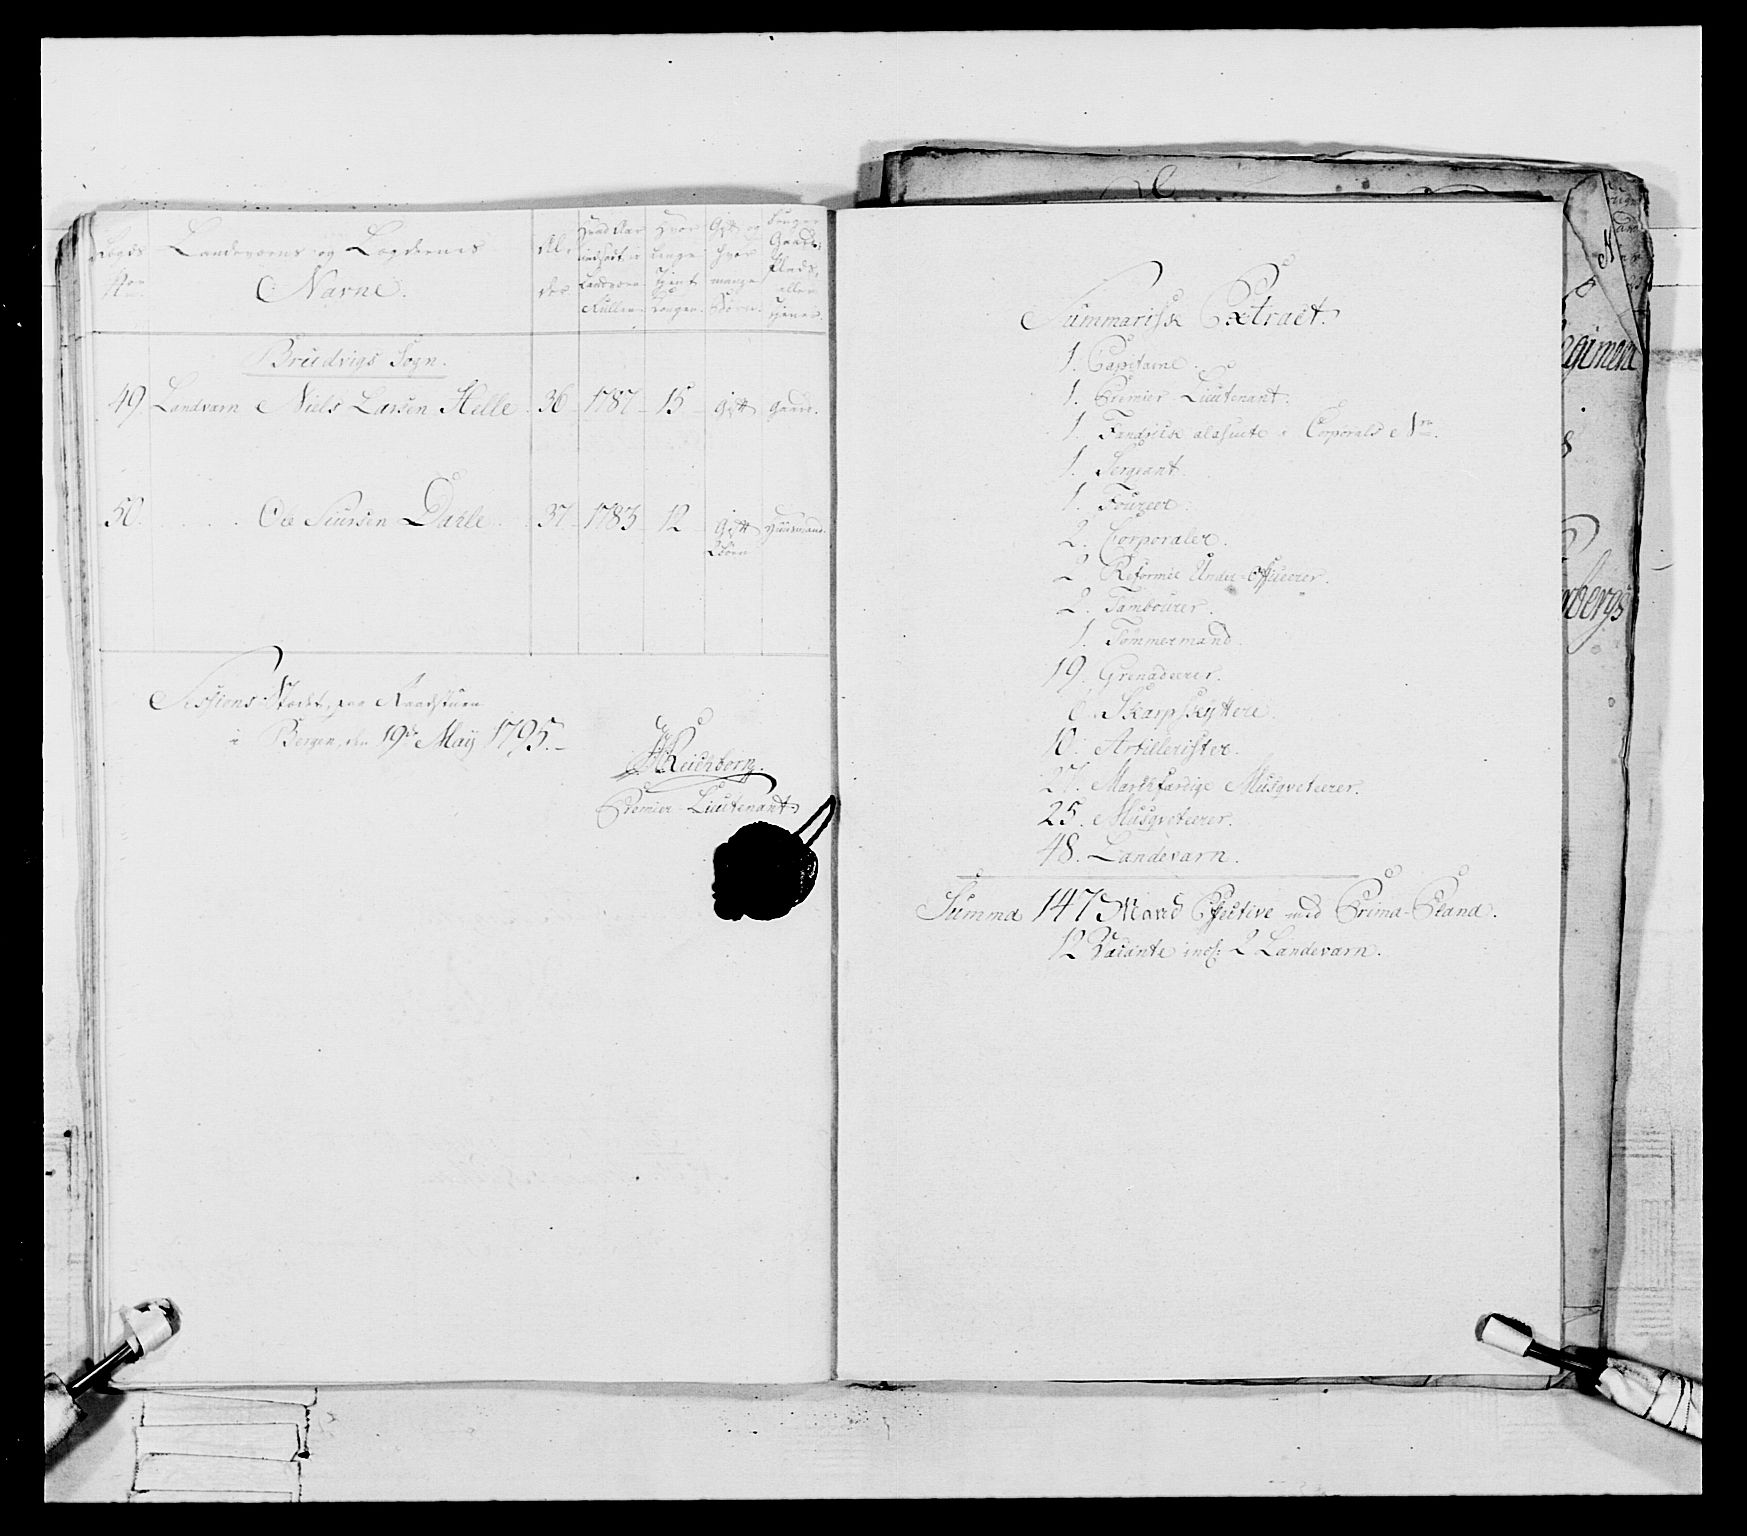 Lægds No
Landeværns og Lægdernes
Navne.
Al-
der
Hvad Aar
indsadt i
Landværn
Rullen
Hvor
længe
tjent
Kongen.
Gift og
hvor
mange
Børn.
Gaard,
Plads,
eller
tjener.
Brudvigs Sogn.
49. Landværn Niels Larsen Helle 36 1787 15 Gift Gaard.
50. Ole Siursen Dahle 37 1783 12 Gift Huusmand.
2 Børn
Sessions Stædet, paa Raadstuen
i Bergen, den 19de May 1795.
Reichborn.
Premier-Lieutenant.
Summarisk Extract.
1. Capitaine.
1. Premier Lieutenant.
1. Fandrik alasuite Corporals
1. Sergeant.
1. Fourer.
2. Corporaler.
2 Reformée Under-Officerer.
2. Tambourer.
1. Tømmermand.
19. Grenadeerer.
6. Skarpskyttere.
10. Artillerister.
27. Marschfærdige Musqveteerer.
25. Musqveteerer.
48. Landeværn.
Summa 147 Mand Effective med Prima-Plana.
12 Vacante incl: 2 Landeværn.